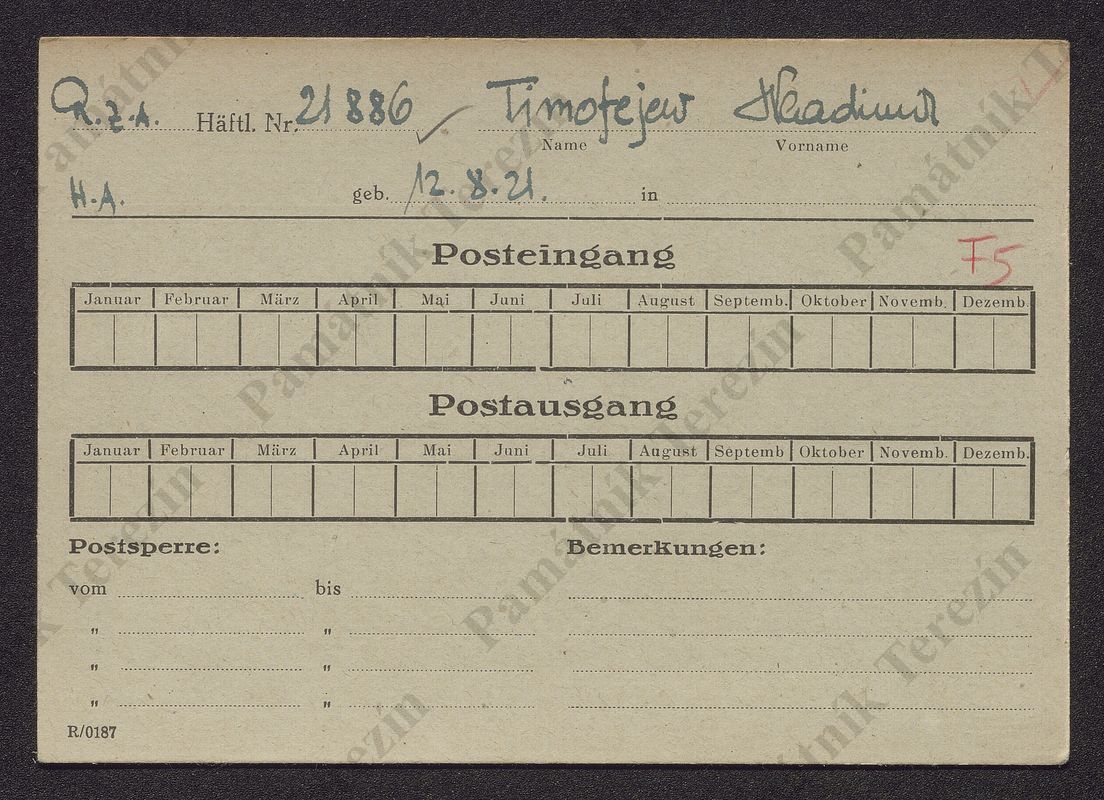 R.Z.A. Häftl. Nr. 21886 Timofejew Wladimir
Name Vorname
H.A. geb. 12.8.21. in
Posteingang
F5
Januar Februar März April Mai Juni Juli August Septemb. Oktober Novemb. Dezemb.
Postausgang
Januar Februar März April Mai Juni Juli August Septemb Oktober Novemb. Dezemb.
Postsperre: Bemerkungen:
vom bis
" "
" "
" "
R/0187
Památník Terezín